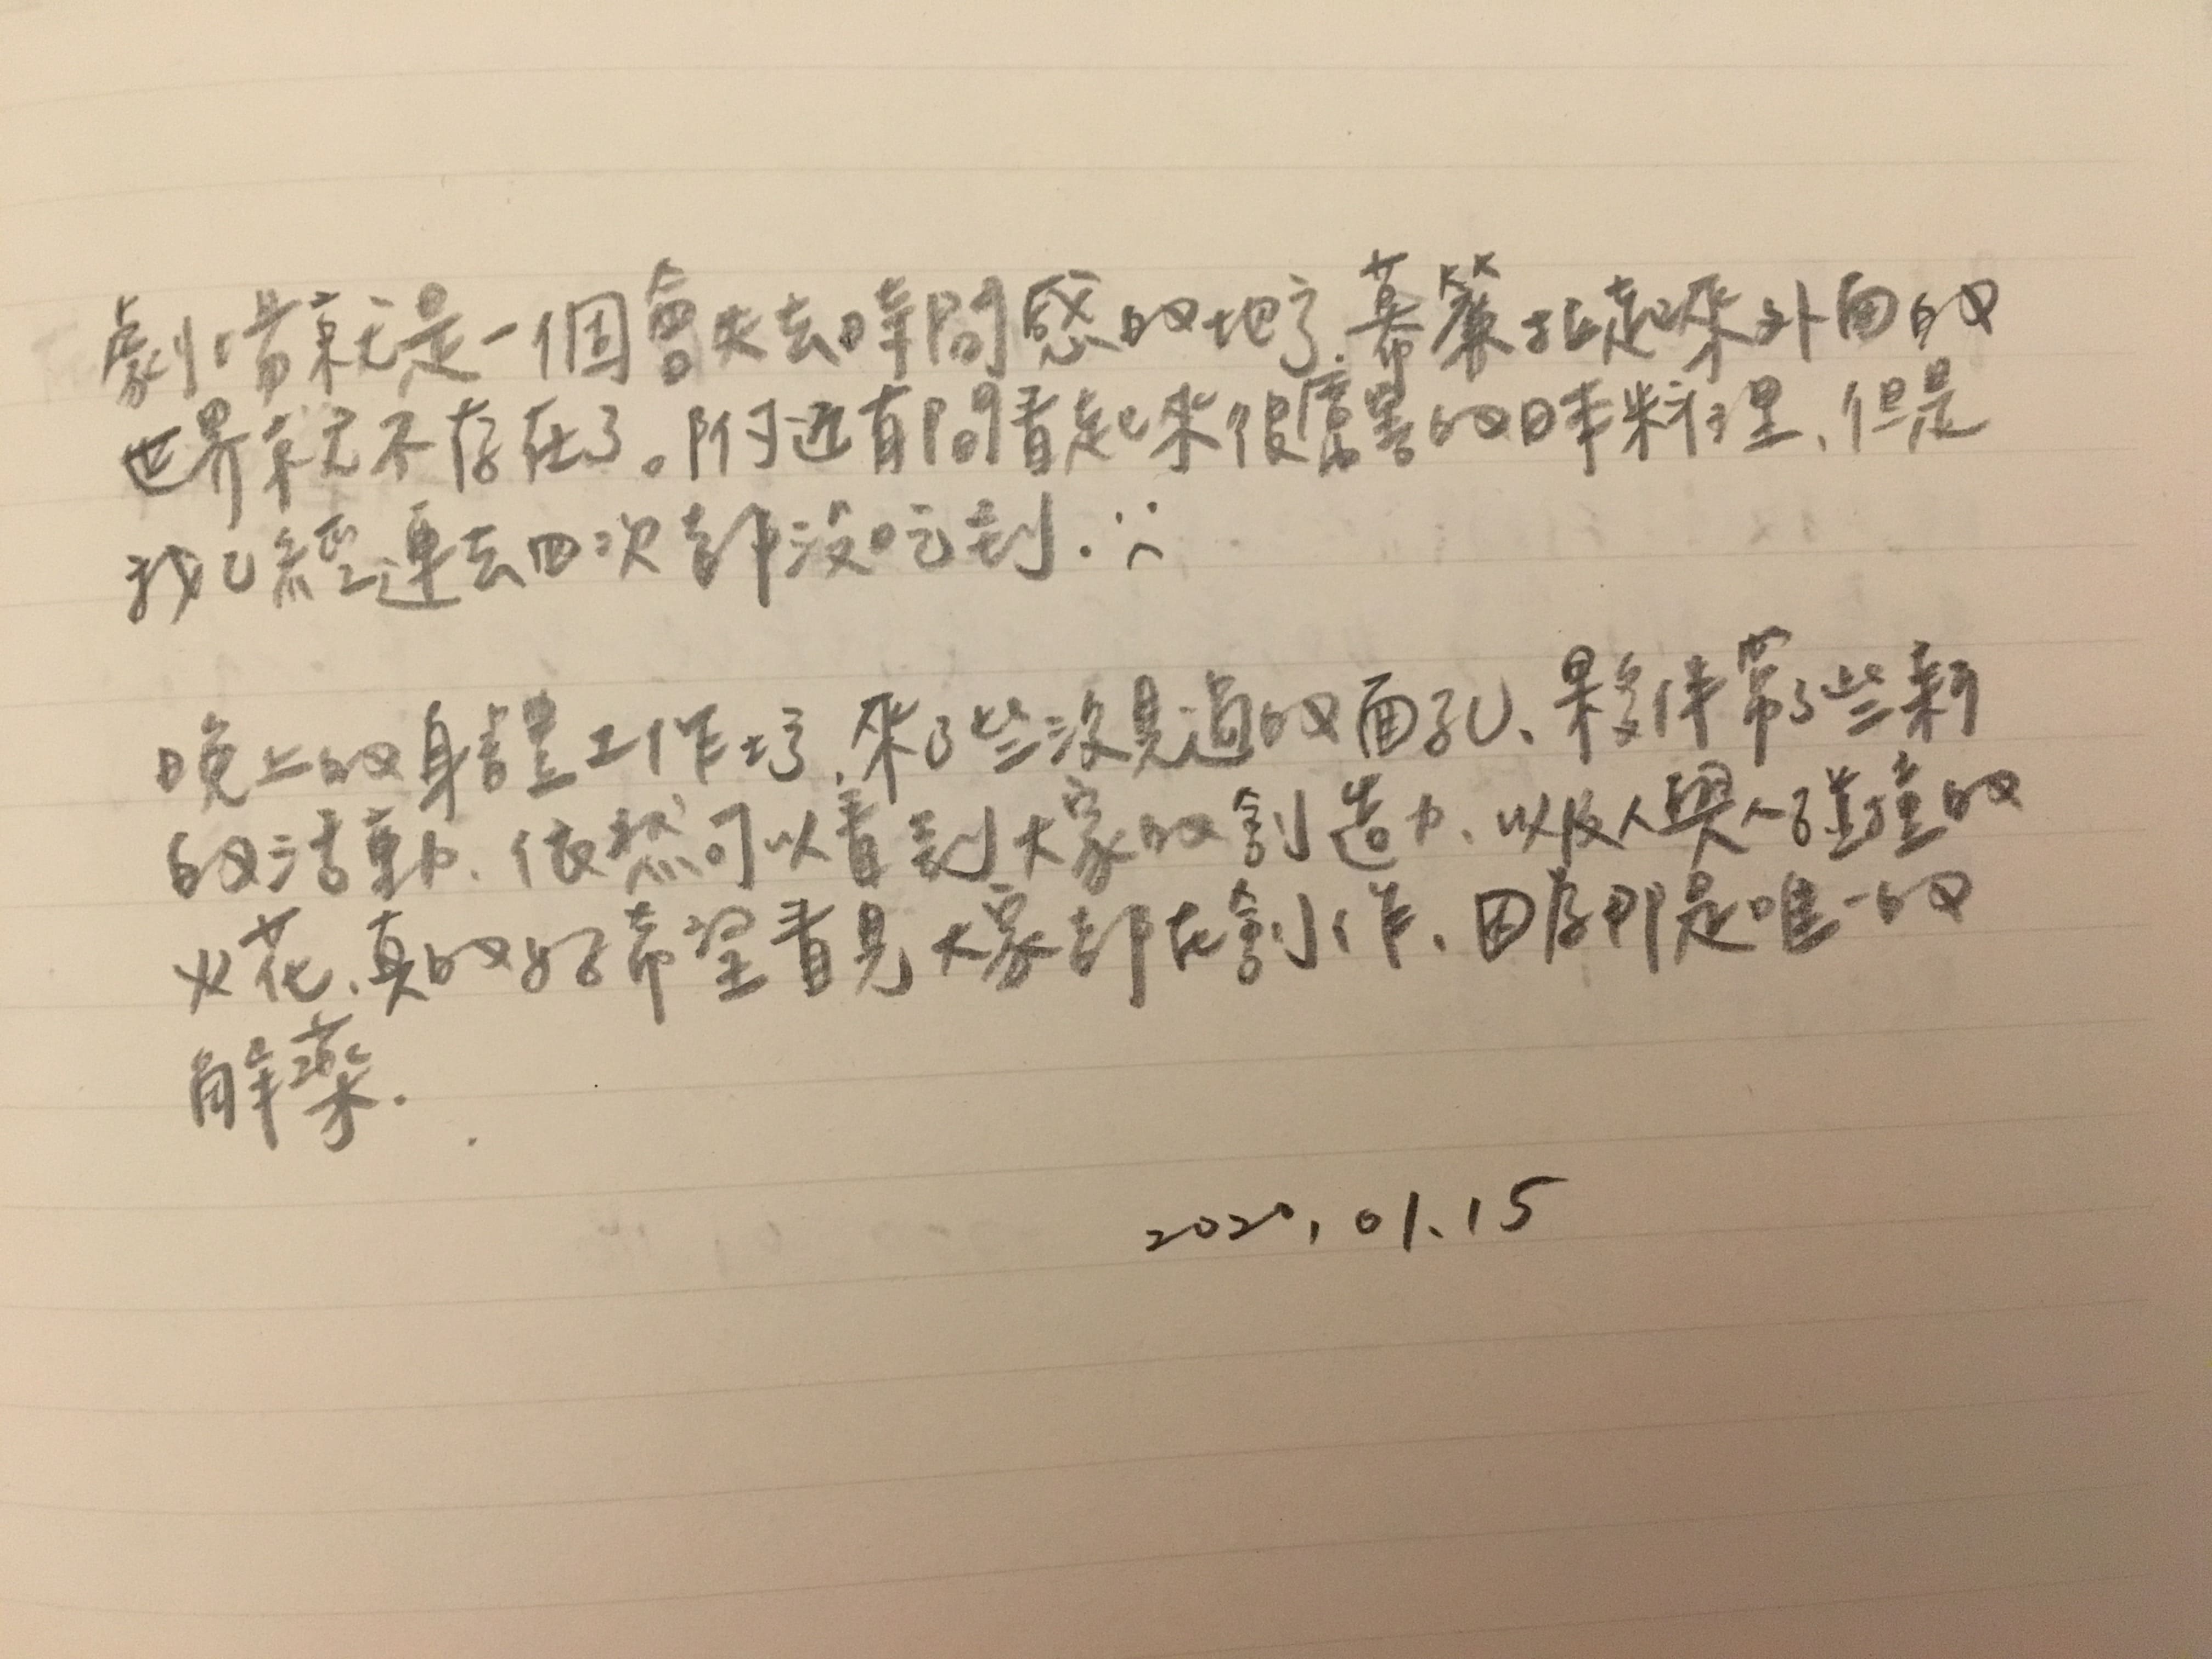 劇場就是一個會失去時間感的地方.幕簾拉起來外面的
世界就不存在了。附近有間看起來很厲害的日本料理、但是
我已經連去四次都沒吃到. :(
晚上的身體工作坊,來了些沒見過的面孔、夥伴帶了些新
的活動、依然可以看到大家的創造力、以及人與人碰撞的
火花、真的好希望看見大家都在創作、因為那是唯一的
解藥.
2020.01.15